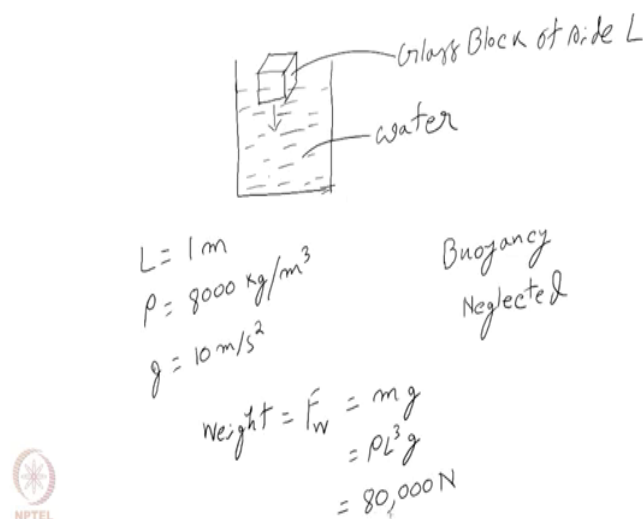 Glass Block of side L
water
L = 1 m
ρ = 8000 kg/m³
g = 10 m/s²
Buoyancy
Neglected
Weight = F_W = mg
= ρL³g
= 80,000 N
NPTEL